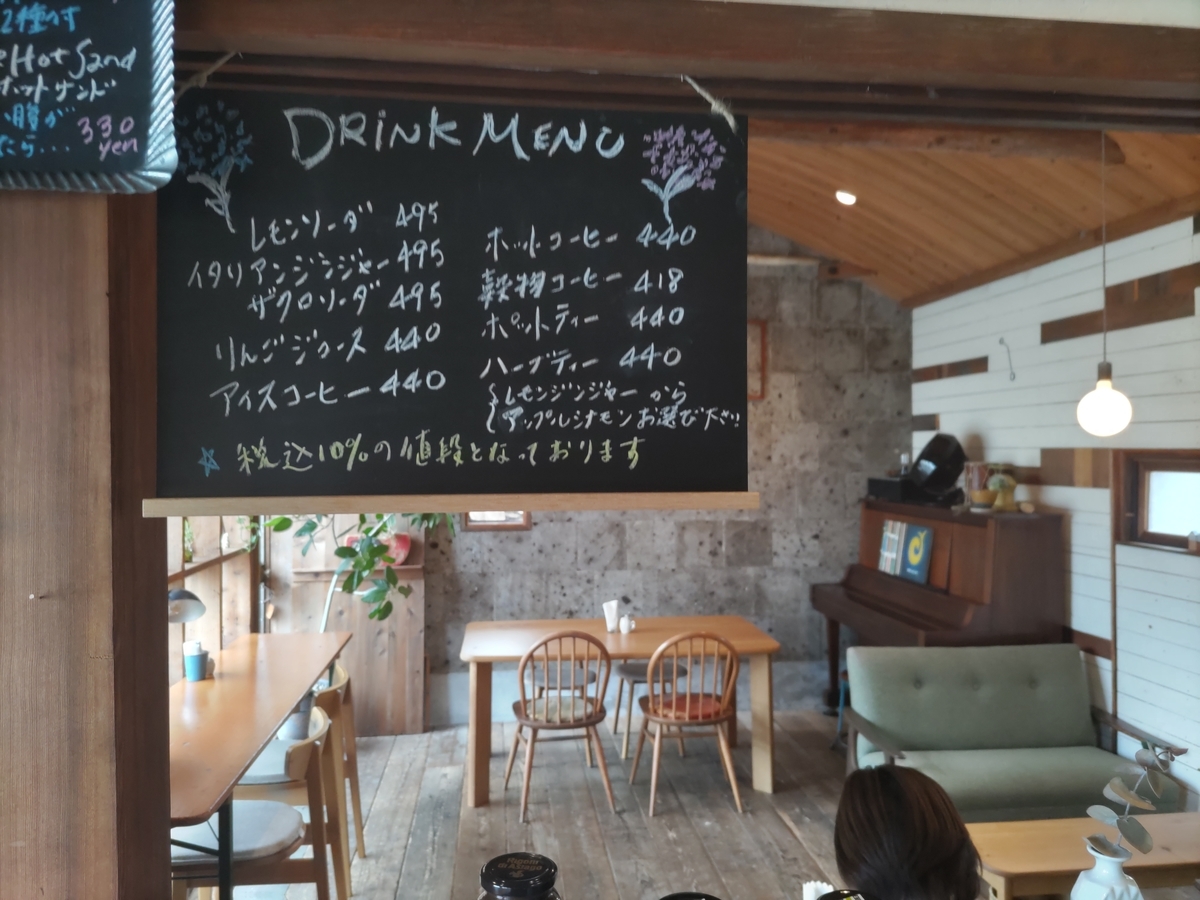 2種の
Hot Sand
ホットサンド
330
yen
DRINK MENU
レモンソーダ 495
イタリアンジンジャー 495
ザクロソーダ 495
りんごジュース 440
アイスコーヒー 440
ホットコーヒー 440
穀物コーヒー 418
ホットティー 440
ハーブティー 440
レモンジンジャー から
アップルシナモン お選び下さい
☆ 税込10%の値段となっております